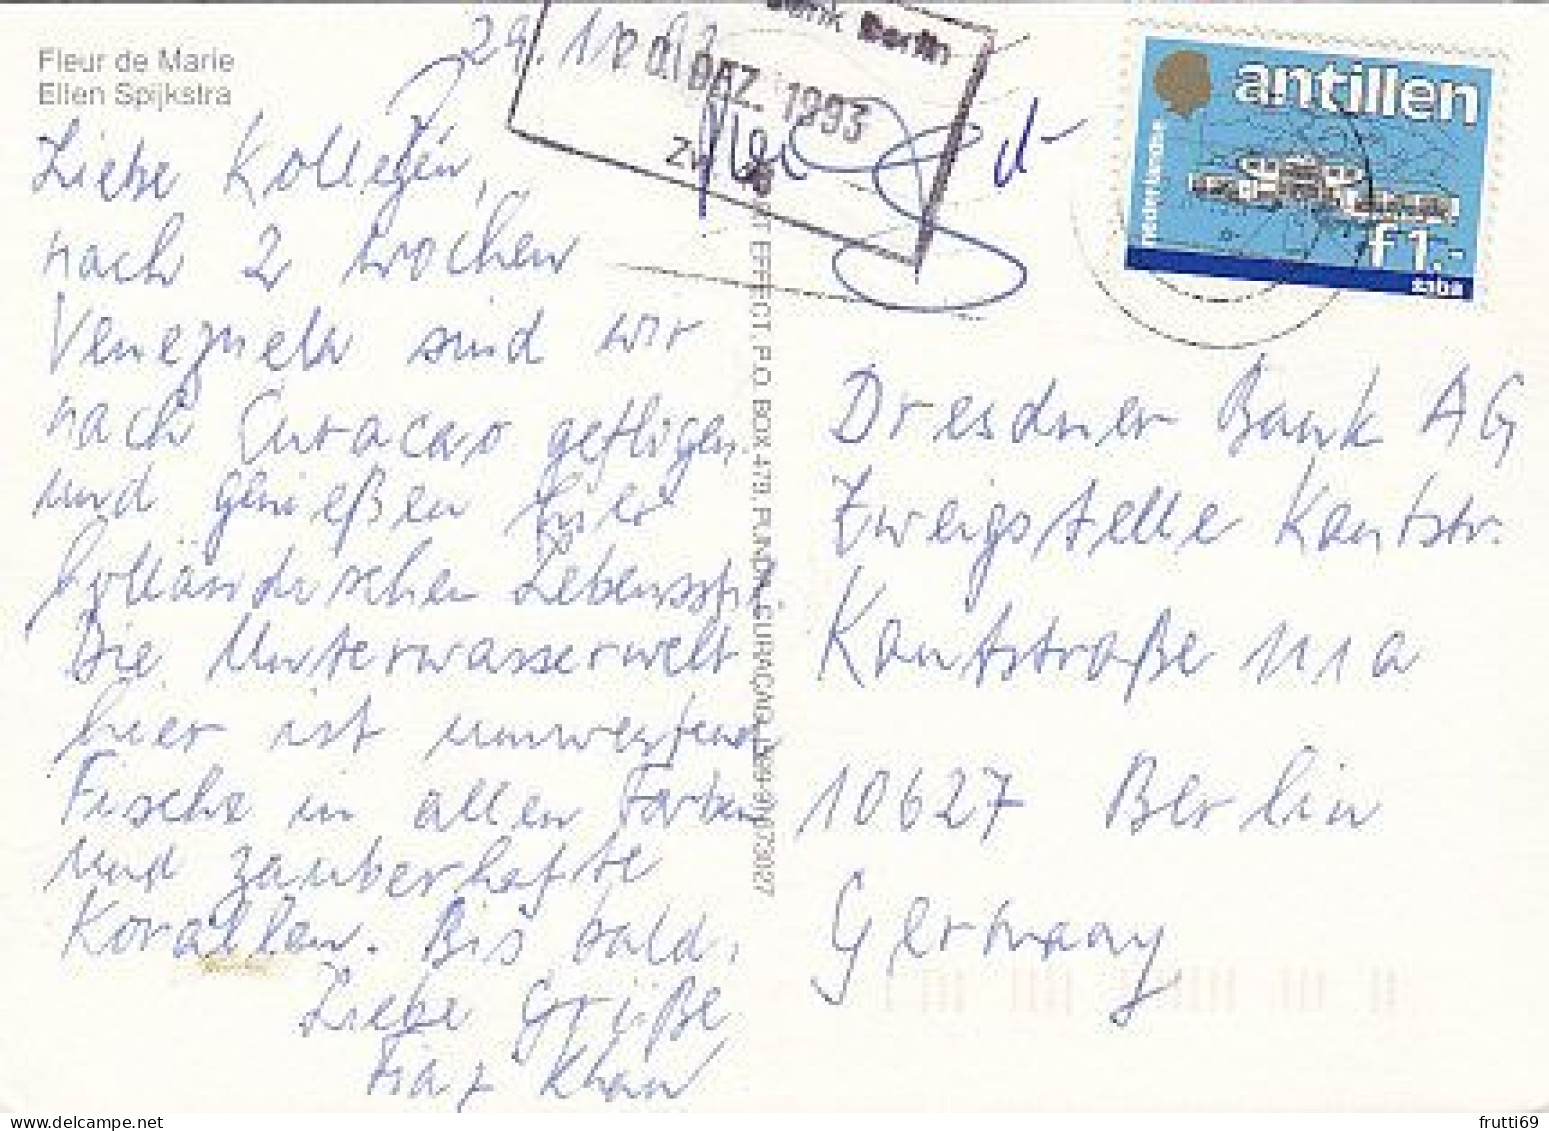 Fleur de Marie
Ellen Spijkstra
29.11.93
Bank Berlin
DEZ. 1993
Liebe Kollegen,
nach 2 Wochen
Venezuela sind wir
nach Curacao geflogen
und genießen hier
holländischen
Die Unterwasserwelt
hier ist
Fische in allen Farben
und zauberhafte
Korallen. Bis bald.
Liebe Grüße
Khan
EFFECT, P.O. BOX 479, PUNDA, CURAÇAO
antillen
nederlandse
f 1.-
saba
Dresdner Bank AG
Zweigstelle Kantstr.
Kantstraße 111a
10627 Berlin
Germany
frutti69